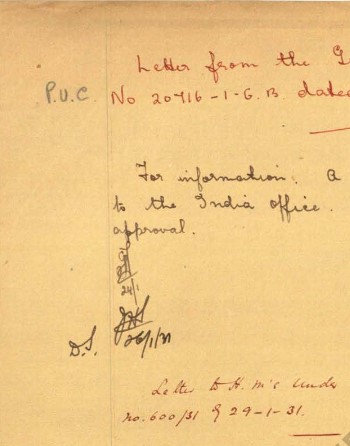 Letter from the G
P.U.C. No 20716-1-G.B. dated
For information. A
to the India office.
approval.
24/1
D.S. 26/1/31
Letter to H. M's under
no. 600/31 of 29-1-31.